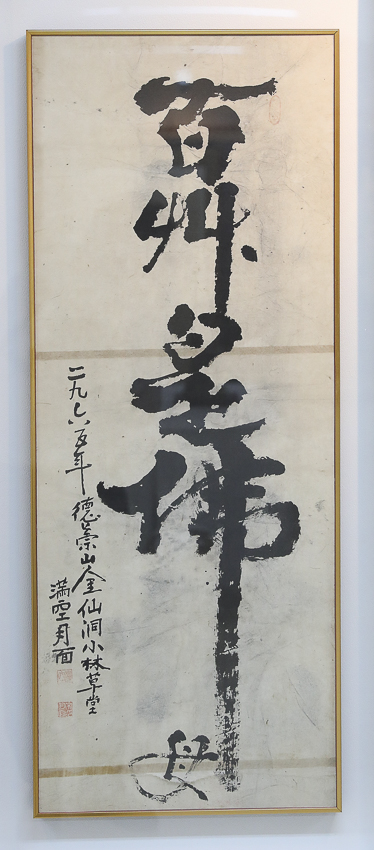 百艸是佛母
二九六五年 德崇山金仙洞小林草堂
滿空月面